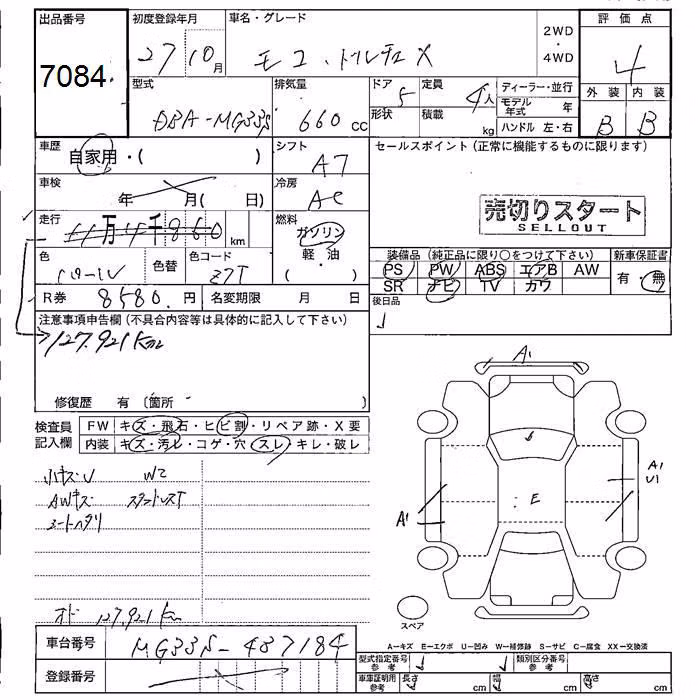 出品番号
7084
初度登録年月
27 10月
車名・グレード
モコ・ドルチェX
2WD
・
4WD
評価点
4
外装 内装
B B
型式
DBA-MG33S
排気量
660 cc
ドア
5
形状
定員
4人
積載
kg
ディーラー・並行
モデル年式 年
ハンドル 左・右
車歴
自家用・( )
シフト
A7
セールスポイント (正常に機能するものに限ります)
車検
年 月( 日)
冷房
AC
売切りスタート
SELLOUT
走行
万 千860 km
燃料
ガソリン
軽・油
・
( )
色
色替
色コード
Z7T
装備品 (純正品に限り○をつけて下さい)
PS PW ABS エアB AW
SR ナビ TV カワ
新車保証書
有・無
R券 8580.円
名変期限 月 日
後日品
注意事項申告欄 (不具合内容等は具体的に記入して下さい)
127.921Km
修復歴 有 〔箇所 〕
検査員
記入欄
FW キズ・飛石・ヒビ割・リペア跡・X要
内装 キズ・汚レ・コゲ・穴 スレ・キレ・破レ
小キズ・U W2
AWキズ
シートヘタリ
オド 127.921Km
A1
A1
U1
E
A1
スペア
A-キズ E-エクボ U-凹み W-補修跡 S-サビ C-腐食 XX-交換済
車台番号
MG33S-487184
登録番号
型式指定番号 参考
類別区分番号 参考
車庫証明用 参考
長さ cm
幅 cm
高さ cm